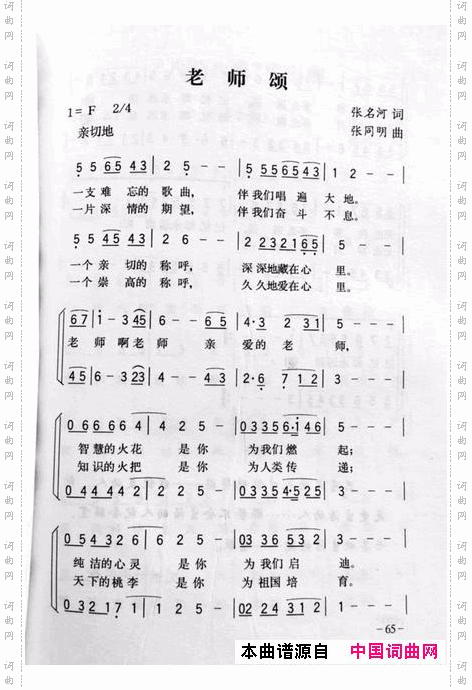 老师颂
1=F 2/4
张名河 词
亲切地
张同明 曲
5 5 65 43 | 2 5 - - | 5 55 65 43 | 1 2 - - |
一支难 忘的 歌曲, 伴我们唱 遍 大地。
一片深 情的 期望, 伴我们奋 斗 不息。
5 5 45 43 | 2 6 - - | 2 23 21 65 | 5 - - - |
一个亲 切的 称呼, 深深地藏在心 里。
一个崇 高的 称呼, 久久地爱在心 里。
67 | i - 3 45 | 6 - - 65 | 4·3 2 1 | 5 - - - |
老 师 啊老 师 亲 爱的 老 师,
45 | 6 - 3 23 | 4 - - 43 | 2·6 7 12 | 3 - - - |
0 66 66 64 | 2 5 - - | 0 33 56·i 46 | 5 - - - |
智慧的火花 是你 为我们燃 起;
知识的火把 是你 为人类传 递;
0 44 44 42 | 1 2 - - | 0 33 34·5 25 | 3 - - - |
0 54 32 6 | 1 2 5 - | 02 35 4 32 | 1 - - - |
纯洁的心灵 是你 为我们启 迪。
天下的桃李 是你 为祖国培 育。
0 32 17 1 | 1 2 5 - | 02 24 3 12 | 1 - - - |
-65-
本曲谱源自 中国词曲网